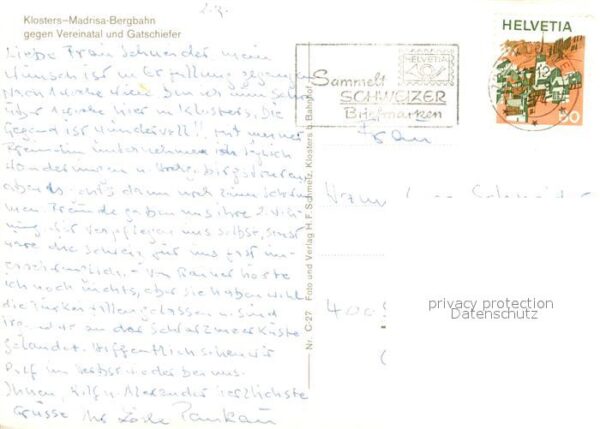 Klosters–Madrisa-Bergbahn
gegen Vereinatal und Gatschiefer
Liebe Frau Schneider, mein
Wunsch ist in Erfüllung gegangen
Nach 1 Woche Wien bin ich nun schon
über 1 Woche hier in Klosters. Die
Gegend ist wundervoll!! Mit meiner
Freundin unternehmen ich täglich
Wanderungen u. Hochgebirgstouren
abends geht's dann noch zum Schwim-
men. Freunde gaben uns ihre 2. Woh-
nung, wir verpflegen uns selbst, sonst
wäre die Schweiz für uns fast un-
erschwinglich. – Von Rainer hörte
ich noch nichts, aber sie haben wohl
die Türkei fallengelassen u. sind
irgendwo an der Schwarzmeerküste
gelandet. Hoffentlich sehen wir
Rolf im Herbst wieder bei uns.
Ihnen, Rolf u. Alexander herzlichste
Grüsse Ihr Pankau
Nr. C-27 Foto und Verlag H. F. Schmelz, Klosters b. Bahnhof
Sammelt
SCHWEIZER
Briefmarken
HELVETIA
HELVETIA
50
13
Frau
400
privacy protection
Datenschutz